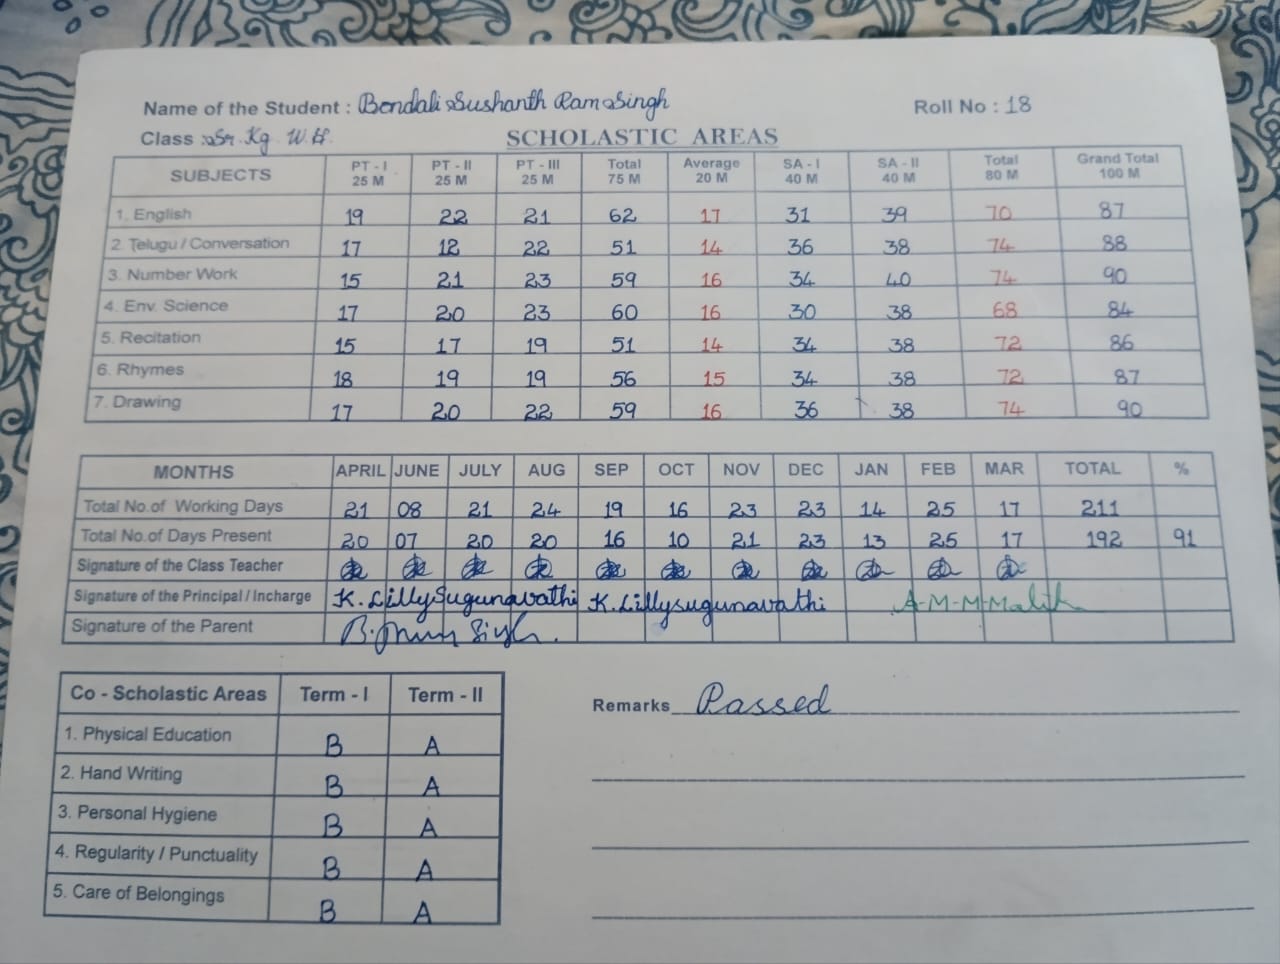 Name of the Student : Bondali Sushanth Ram Singh Roll No : 18
Class : Sr. Kg W.H.
SCHOLASTIC AREAS
SUBJECTS PT - I 25 M PT - II 25 M PT - III 25 M Total 75 M Average 20 M SA - I 40 M SA - II 40 M Total 80 M Grand Total 100 M
1. English 19 22 21 62 17 31 39 70 87
2. Telugu / Conversation 17 12 22 51 14 36 38 74 88
3. Number Work 15 21 23 59 16 34 40 74 90
4. Env. Science 17 20 23 60 16 30 38 68 84
5. Recitation 15 17 19 51 14 34 38 72 86
6. Rhymes 18 19 19 56 15 34 38 72 87
7. Drawing 17 20 22 59 16 36 38 74 90
MONTHS APRIL JUNE JULY AUG SEP OCT NOV DEC JAN FEB MAR TOTAL %
Total No.of Working Days 21 08 21 24 19 16 23 23 14 25 17 211
Total No.of Days Present 20 07 20 20 16 10 21 23 13 25 17 192 91
Signature of the Class Teacher
Signature of the Principal / Incharge K. Lillysugunavathi K. Lillysugunavathi A-M-M-Malik
Signature of the Parent Singh
Co - Scholastic Areas Term - I Term - II
1. Physical Education B A
2. Hand Writing B A
3. Personal Hygiene B A
4. Regularity / Punctuality B A
5. Care of Belongings B A
Remarks Passed